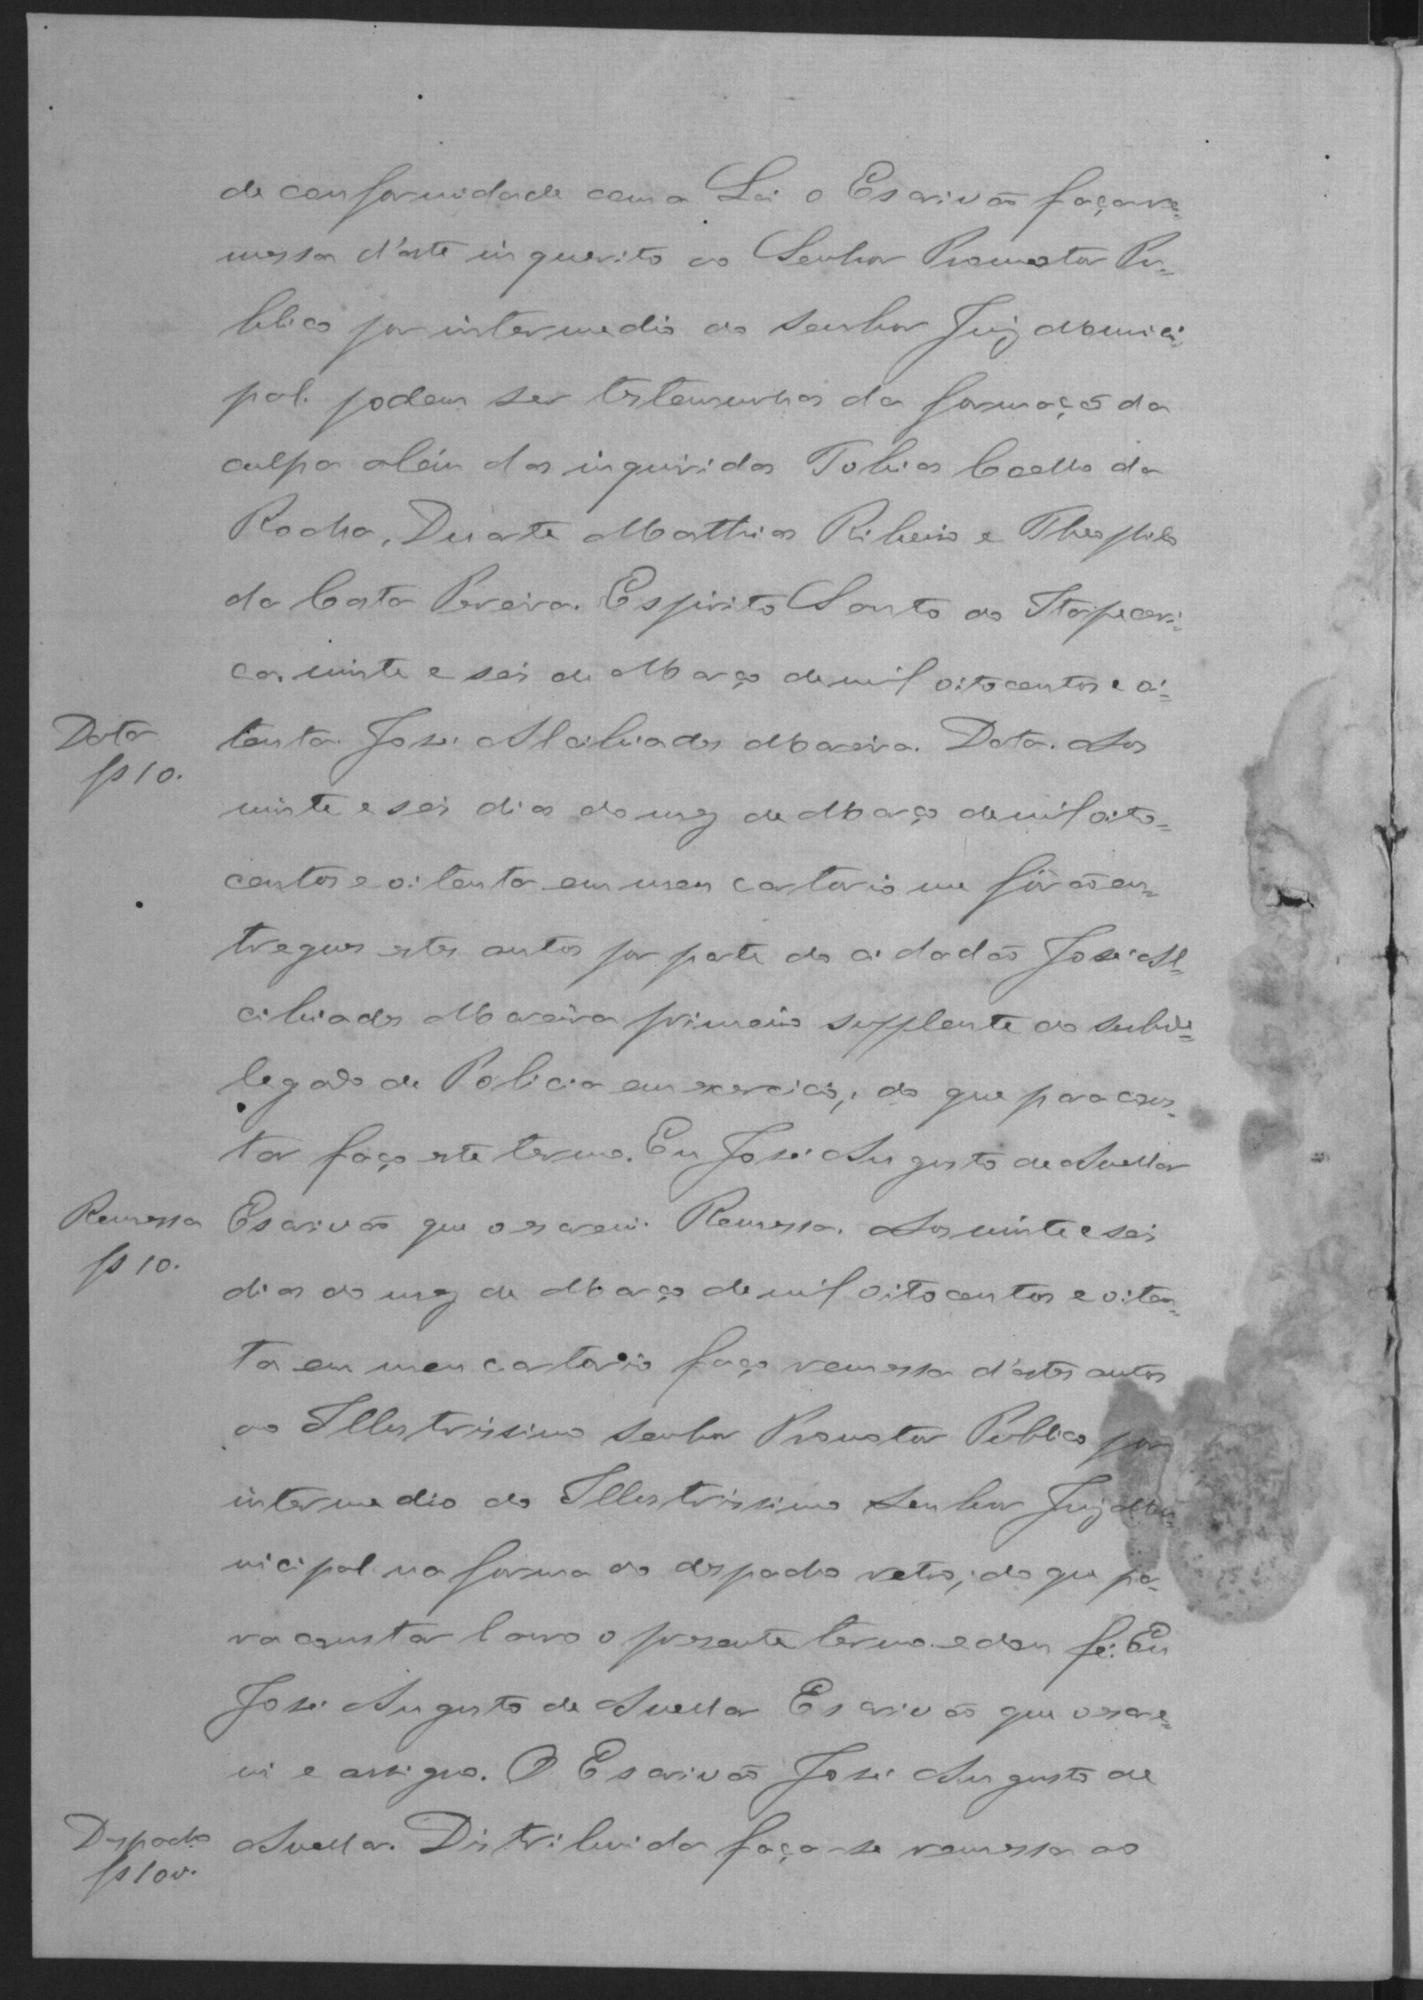 de conformidade com a Lei o Escrivão faça re-
messa d'este inquerito ao Senhor Promotor Pu-
blico por intermedio do senhor Juiz Munici-
pal. podem ser testemunhas da formação da
culpa alem dos inquiridos Tobias Coelho da
Rocha, Duarte Mathias Ribeiro e Theophilo
da Costa Pereira. Espirito Santo do Itapeceri-
ca, vinte e seis de Março de mil oitocentos e oi-
Data
fs 10.
tenta. José Alcibiades Moreira. Data. Aos
vinte e seis dias do mez de Março de mil oito-
centos e oitenta em meu cartorio me forão en-
tregues estes autos por parte do cidadão José Al-
cibiades Moreira primeiro supplente do subde-
legado de Policia em exercicio, do que para cons-
tar faço este termo. Eu José Augusto de Avellar
Remessa
fs 10.
Escrivão que o escrevi. Remessa. Aos vinte e seis
dias do mez de Março de mil oitocentos e oiten-
ta em meu cartorio faço remessa d'estes autos
ao Illustrissimo senhor Promotor Publico por
intermedio do Illustrissimo Senhor Juiz Mu-
nicipal na forma do despacho retro, do que pa-
ra constar lavro o presente termo e dou fé. Eu
José Augusto de Avellar Escrivão que o escre-
vi e assigno. O Escrivão José Augusto de
Despacho
fs 10v.
Avellar. Distribuida faça-se remessa ao